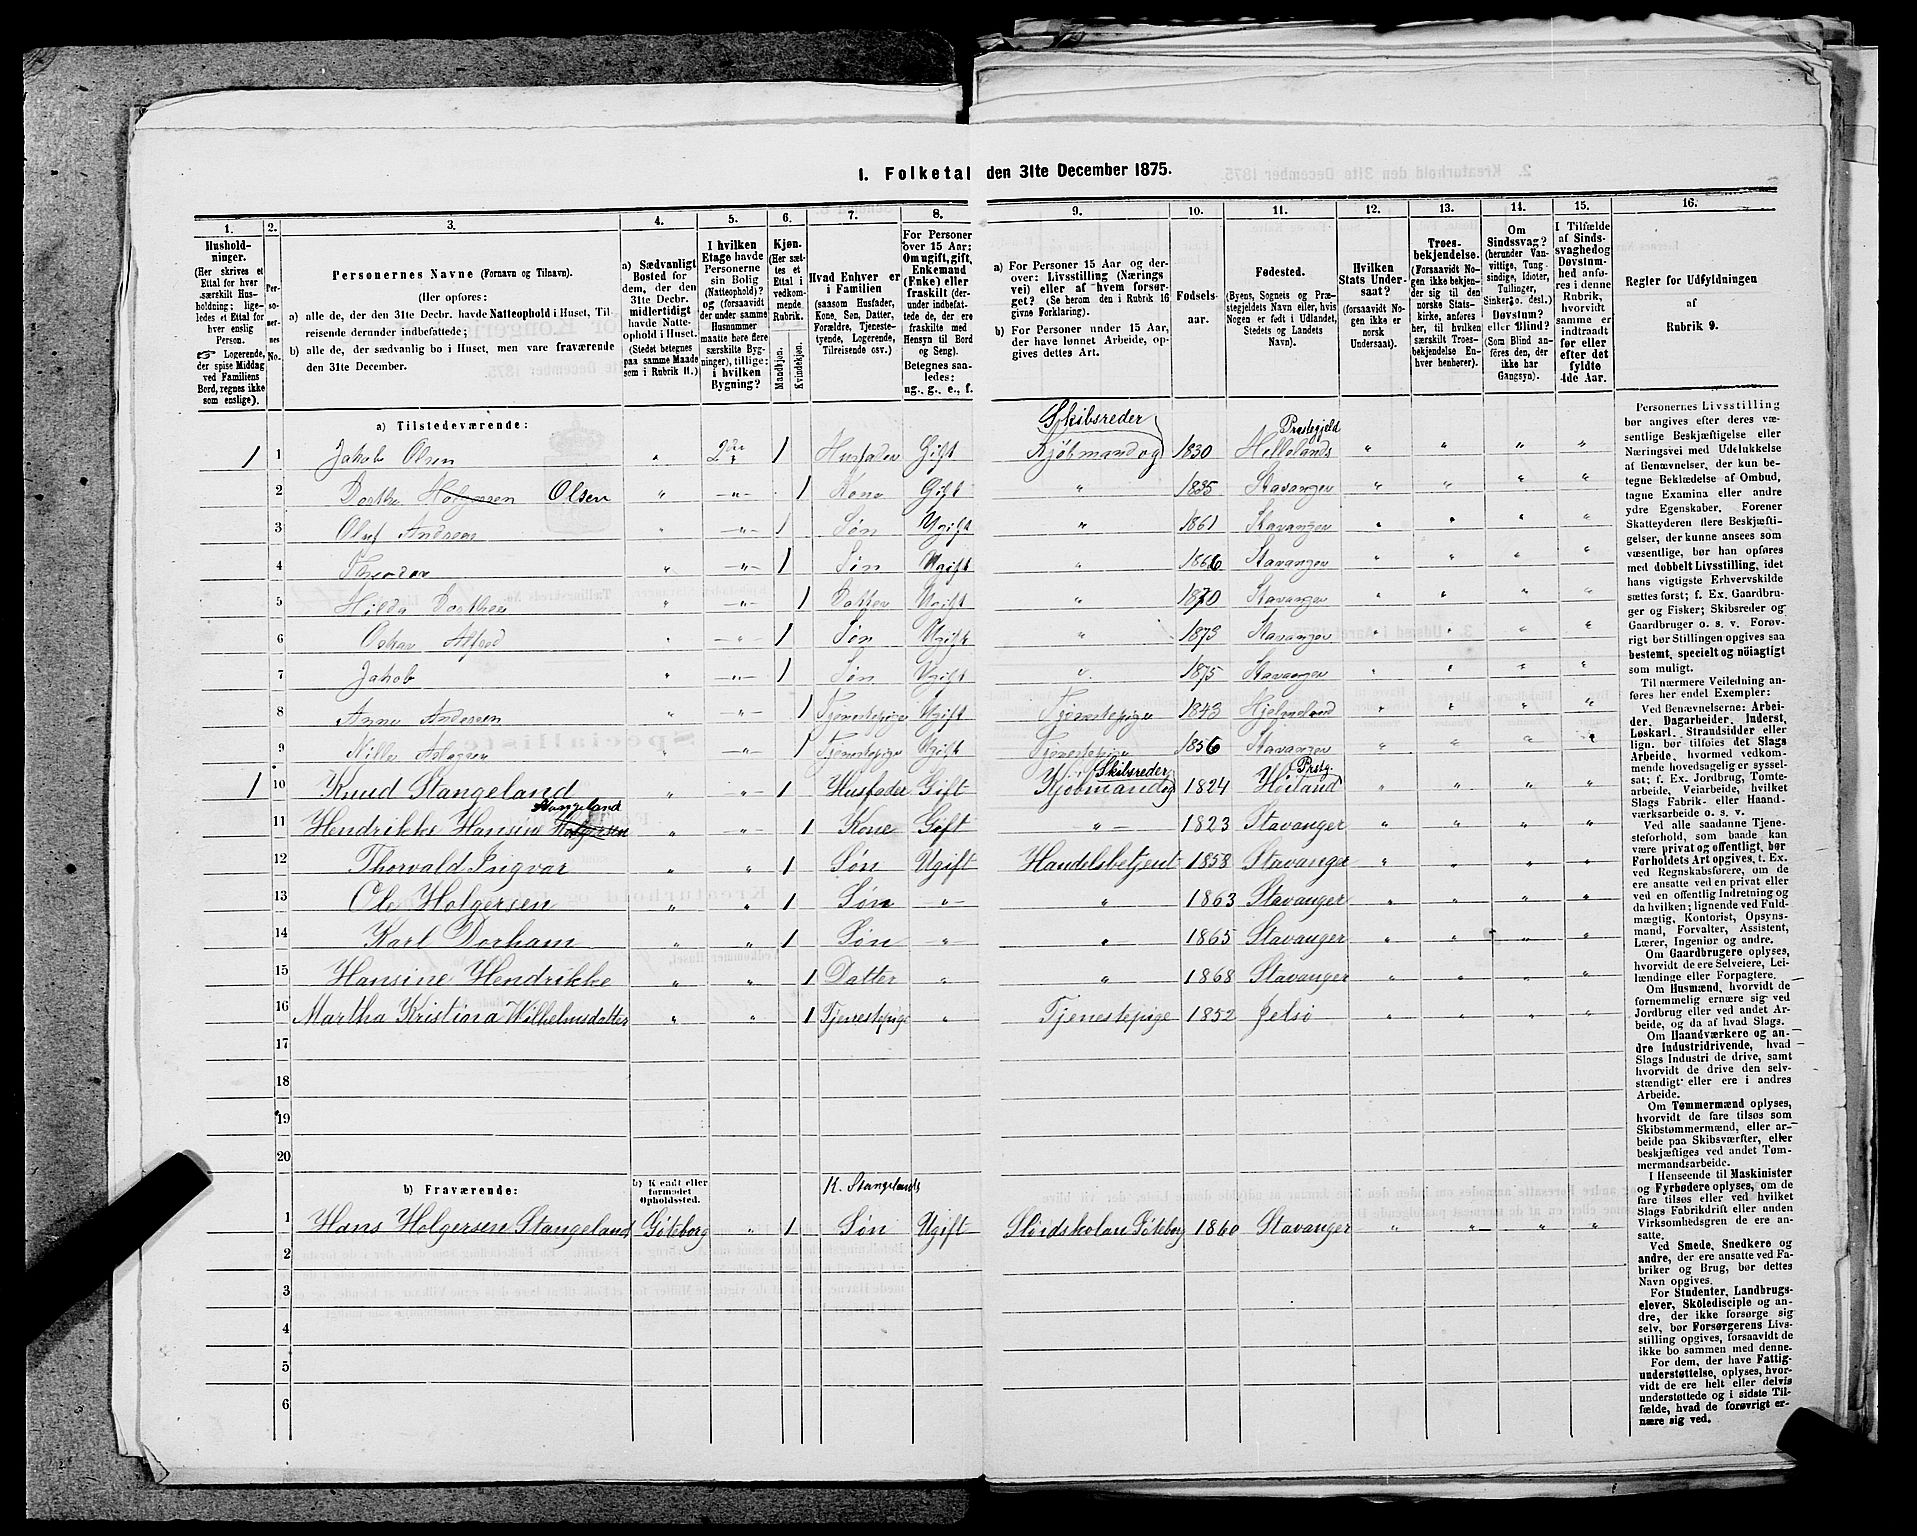 1. Folketal den 31te December 1875.
1. 2. 3. 4. 5. 6. 7. 8. 9. 10. 11. 12. 13. 14. 15. 16.
Husholdninger.
(Her skrives et
Ettal for hver
særskilt Husholdning;
ligeledes et Ettal for
hver enslig
Person.
Logerende,
der spise Middag
ved Familiens
Bord, regnes ikke
som enslige).
Personernes No.
Personernes Navne (Fornavn og Tilnavn).
(Her opføres:
a) alle de, der den 31te Decbr. havde Natteophold i Huset, Tilreisende derunder indbefattede;
b) alle de, der sædvanlig bo i Huset, men vare fraværende
den 31te December.
a) Sædvanligt
Bosted for
dem, der den
31te Decbr.
midlertidigt
havde Natteophold i Huset.
(Stedet betegnes
paa samme Maade
som i Rubrik 11.)
I hvilken
Etage havde
Personerne
sin Bolig
(Natteophold)?
og (forsaavidt
der under samme
Husnummer
maatte høre flere
særskilte Bygninger), tillige:
i hvilken
Bygning?
Kjøn.
(Her sættes et
Ettal i
vedkommende
Rubrik.
Mandkjøn.
Kvindekjøn.
Hvad Enhver er
i Familien
(saasom Husfader,
Kone, Søn, Datter,
Forældre, Tjenestetyende, Logerende,
Tilreisende osv.)
For Personer
over 15 Aar:
Om ugift, gift,
Enkemand
(Enke) eller
fraskilt (derunder indbefattede de, der ere
fraskilte med
Hensyn til Bord
og Seng).
Betegnes saaledes:
ug., g., e., f.
a) For Personer 15 Aar og derover: Livsstilling (Næringsvei) eller af hvem forsørget? (Se herom den i Rubrik 16
givne Forklaring).
b) For Personer under 15 Aar,
der have lønnet Arbeide, opgives dettes Art.
Fødselsaar.
Fødested.
(Byens, Sognets og Præstegjeldets Navn eller, hvis
Nogen er født i Udlandet,
Stedets og Landets
Navn).
Hvilken
Stats Undersaat?
(forsaavidt Nogen ikke er
norsk
Undersaat).
Troesbekjendelse.
(Forsaavidt Nogen ikke bekjender sig til den
norske Statskirke, anføres
her, til hvilken
særskilt Troesbekjendelse Enhver henhører).
Om
Sindssvag?
(herunder Vanvittige, Tungsindige, Idioter,
Tullinger,
Sinker o. desl.)
Døvstum?
eller Blind?
(Som Blind anføres den, der
ikke har
Gangsyn).
I Tilfælde
af Sindssvaghed og
Døvstumhed anføres i denne
Rubrik,
hvorvidt
samme er
indtraadt
før eller
efter det
fyldte
4de Aar.
Regler for Udfyldningen
af
Rubrik 9.
a) Tilstedeværende:
1 1 Jakob Olsen " 2den 1 Husfader Gift Kjøbmand og Skibsreder 1830 Hellelands Prestegjeld " " " "
2 Dorthe Holgersen Olsen " " 1 Kone Gift " 1835 Stavanger " " " "
3 Oluf Andreas " " 1 Søn Ugift " 1861 Stavanger " " " "
4 Theodor " " 1 Søn Ugift " 1866 Stavanger " " " "
5 Hilda Dorthea " " 1 Datter Ugift " 1870 Stavanger " " " "
6 Oskar Alfred " " 1 Søn Ugift " 1873 Stavanger " " " "
7 Jakob " " 1 Søn Ugift " 1875 Stavanger " " " "
8 Anne Andersen " " 1 Tjenestepige Ugift Tjenestepige 1843 Hjelmeland " " " "
9 " " 1 Tjenestepige Ugift Tjenestepige 1856 Stavanger " " " "
1 10 Knud Stangeland " " 1 Husfader Gift Kjøbmand og Skibsreder 1824 Høiland Prstg. " " " "
11 Hendrikke Hansine Holgersen Stangeland " " 1 Kone Gift " 1823 Stavanger " " " "
12 Thorvald Ingvar " " 1 Søn Ugift Handelsbetjent 1858 Stavanger " " " "
13 Ole Holgersen " " 1 Søn " " 1863 Stavanger " " " "
14 Karl Dorham " " 1 Søn " " 1865 Stavanger " " " "
15 Hansine Hendrikke " " 1 Datter " " 1868 Stavanger " " " "
16 Martha Kristiana Wilhelmsdatter " " 1 Tjenestepige " Tjenestepige 1852 Jelsø " " " "
17
18
19
20
b) Fraværende:
b) Kjendt eller
formodet
Opholdssted.
K. Stangelands
1 Hans Holgersen Stangeland Göteborg " 1 Søn Ugift Slöidskolan Göteborg 1860 Stavanger " " " "
2
3
4
5
6
Personernes Livsstilling
bør angives efter deres væsentlige Beskjæftigelse eller
Næringsvei med Udelukkelse
af Benævnelser, der kun betegne Beklædelse af Ombud,
tagne Examina eller andre
ydre Egenskaber. Forener
Skatteyderen flere Beskjæftigelser, der kunne ansees som
væsentlige, bør han opføres
med dobbelt Livsstilling, idet
hans vigtigste Erhvervskilde
sættes først; f. Ex. Gaardbruger og Fisker; Skibsreder og
Gaardbruger o. s. v. Forøvrigt bør Stillingen opgives saa
bestemt, specielt og nöiagtigt
som muligt.
Til nærmere Veiledning anføres her endel Exempler:
Ved Benævnelserne: Arbeider, Dagarbeider, Inderst,
Løskarl, Strandsidder eller
lign. bør tilføies det Slags
Arbeide, hvormed vedkommende hovedsagelig er sysselsat; f. Ex. Jordbrug, Tomtearbeide, Veiarbeide, hvilket
Slags Fabrik- eller Haandværksarbeide o. s. v.
Ved alle saadanne Tjenesteforhold, som baade kan
være privat og offentligt, bør
Forholdets Art opgives, t. Ex.
ved Regnskabsførere, om de
ere ansatte ved en privat eller
ved en offentlig Indretning og
da hvilken; lignende ved Fuldmægtig, Kontorist, Opsynsmand, Forvalter, Assistent,
Lærer, Ingeniør og andre.
Om Gaardbrugere oplyses,
hvorvidt de ere Selveiere, Leilændinge eller Forpagtere.
Om Husmænd, hvorvidt de
fornemmelig ernære sig ved
Jordbrug eller ved andet Arbeide, og da af hvad Slags.
Om Haandværkere og andre Industridrivende, hvad
Slags Industri de drive, samt
hvorvidt de drive den selvstændigt eller ere i andres
Arbeide.
Om Tømmermænd oplyses,
hvorvidt de fare tilsøs som
Skibstømmermænd, eller arbeide paa Skibsværfter, eller
beskjæftiges ved andet Tømmermandsarbeide.
I Henseende til Maskinister
og Fyrbødere oplyses, om de
fare tilsøs eller ved hvilket
Slags Fabrikdrift eller anden
Virksomhed de ere ansatte.
Ved Smede, Snedkere og
andre, der ere ansatte ved Fabriker og Brug, bør dettes
Navn opgives.
For Studenter, Landbrugselever, Skoledisciple og andre, der ikke forsørge sig
selv, bør Forsørgerens Livsstilling opgives, forsaavidt de
ikke bo sammen med denne.
For dem, der have Fattigunderstøttelse, oplyses, hvorvidt de ere helt eller delvis
understøttede og i sidste Tilfælde, hvad de forøvrigt ernære sig ved.